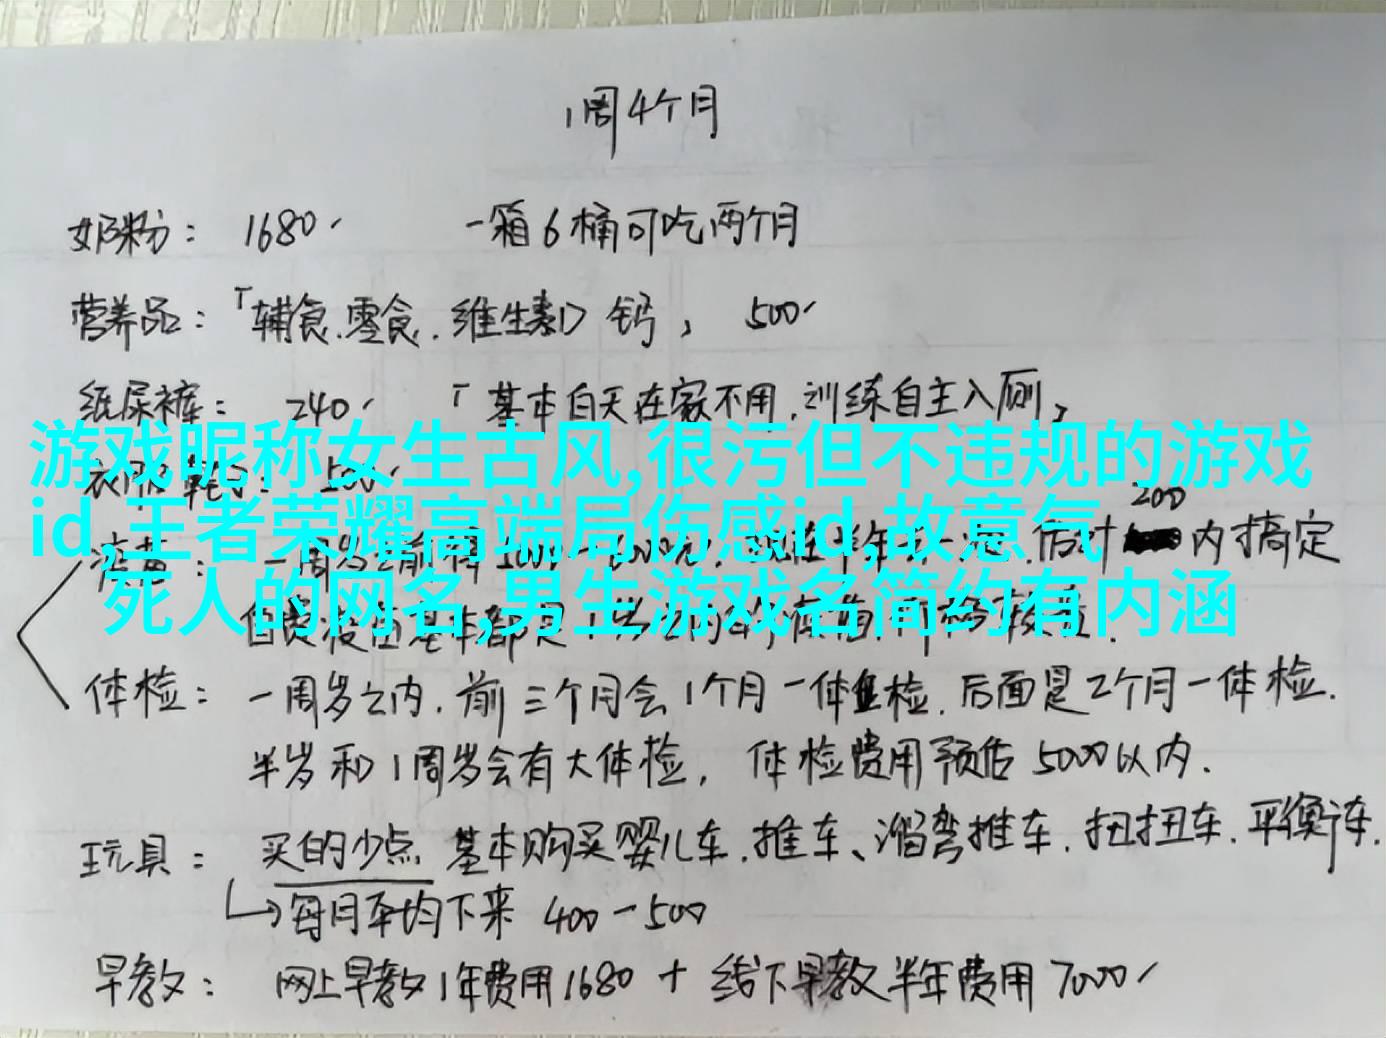 1周4个月
奶粉： 1680 一箱6桶可吃两个月
营养品：「辅食.零食.维生素D 钙， 500
纸尿裤： 240 「基本白天在家不用.训练自主入厕，
游戏昵称女生古风,很污但不违规的游戏
id,王者荣耀高端局伤感id,故意气
死人的网名,男生游戏名简约有内涵
200
内搞定
体检： 一周岁之内.前三个月会1个月一体检.后面是2个月一体检.
半岁和1周岁会有大体检， 体检费用预估5000以内.
玩具： 买的少点 基本购买婴儿车.推车、溜弯推车.扭扭车.平衡车.
每月平均下来 400-500
早教： 网上早教1年费用1680 + 线下早教半年费用7000